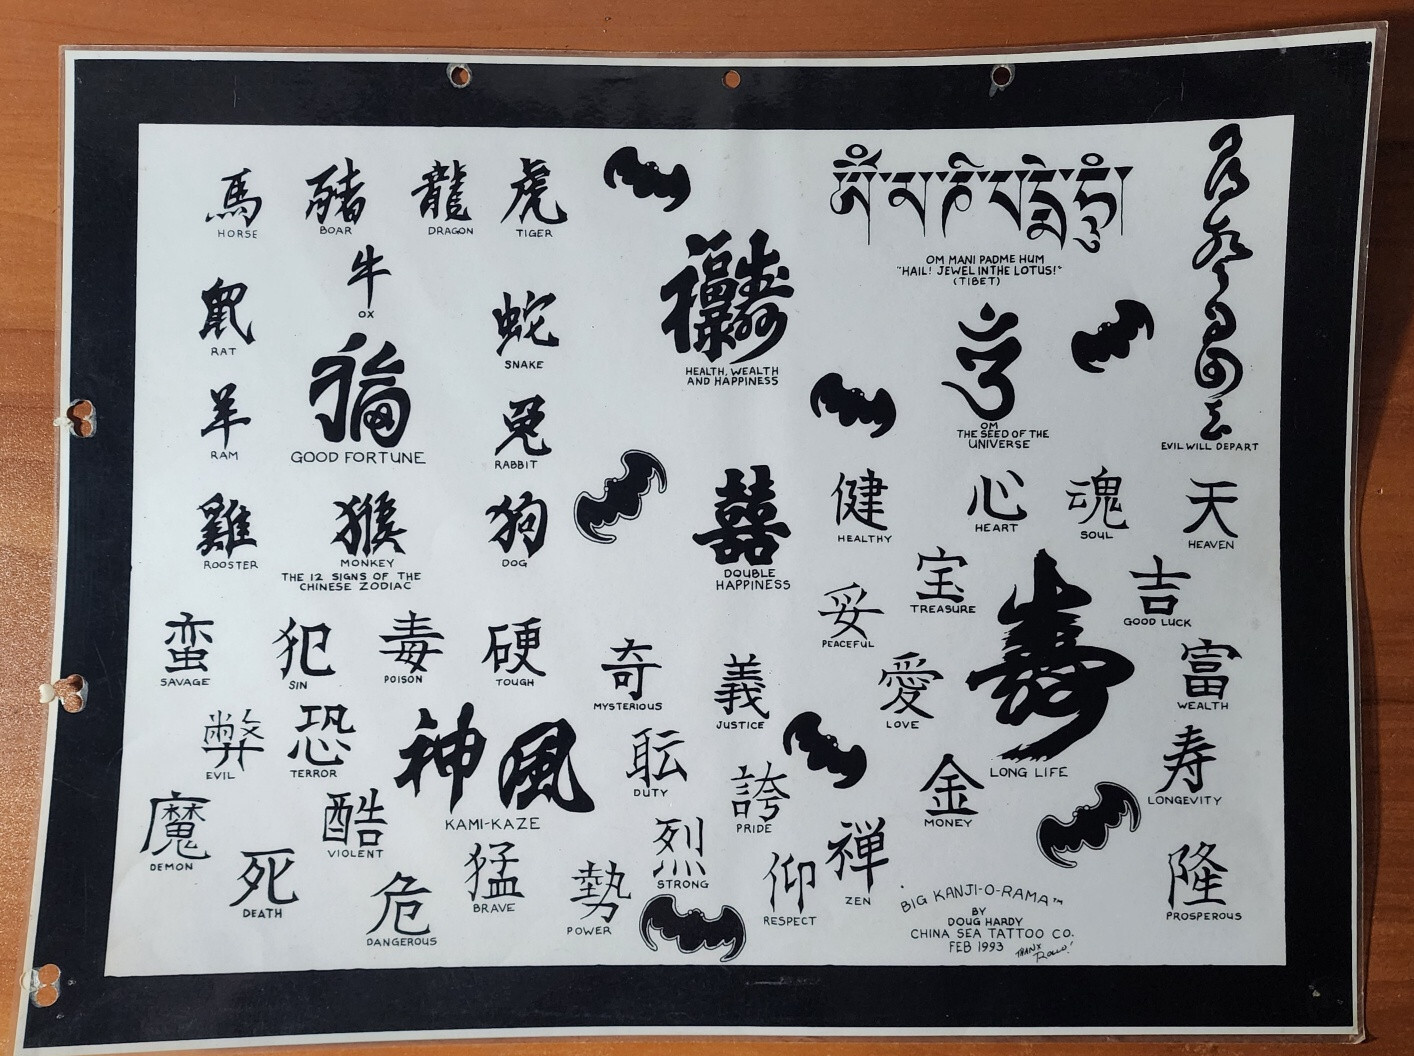 馬
HORSE
豬
BOAR
龍
DRAGON
虎
TIGER
牛
OX
鼠
RAT
蛇
SNAKE
福
GOOD FORTUNE
羊
RAM
兔
RABBIT
雞
ROOSTER
猴
MONKEY
狗
DOG
THE 12 SIGNS OF THE
CHINESE ZODIAC
HEALTH, WEALTH
AND HAPPINESS
囍
DOUBLE
HAPPINESS
ཨོཾ་མ་ཎི་པདྨེ་ཧཱུྃ
OM MANI PADME HUM
"HAIL! JEWEL IN THE LOTUS!"
(TIBET)
OM
THE SEED OF THE
UNIVERSE
EVIL WILL DEPART
健
HEALTHY
心
HEART
魂
SOUL
天
HEAVEN
宝
TREASURE
吉
GOOD LUCK
妥
PEACEFUL
愛
LOVE
壽
LONG LIFE
富
WEALTH
寿
LONGEVITY
金
MONEY
隆
PROSPEROUS
蛮
SAVAGE
犯
SIN
毒
POISON
硬
TOUGH
奇
MYSTERIOUS
義
JUSTICE
弊
EVIL
恐
TERROR
神風
KAMI-KAZE
DUTY
誇
PRIDE
魔
DEMON
酷
VIOLENT
烈
STRONG
死
DEATH
危
DANGEROUS
猛
BRAVE
勢
POWER
仰
RESPECT
禅
ZEN
BIG KANJI-O-RAMA™
BY
DOUG HARDY
CHINA SEA TATTOO CO.
FEB 1993
THANX